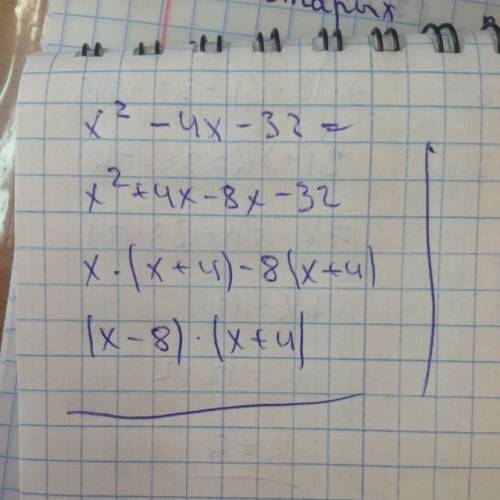 старых
x² - 4x - 32 =
x² + 4x - 8x - 32
x · (x + 4) - 8(x + 4)
(x - 8) · (x + 4)